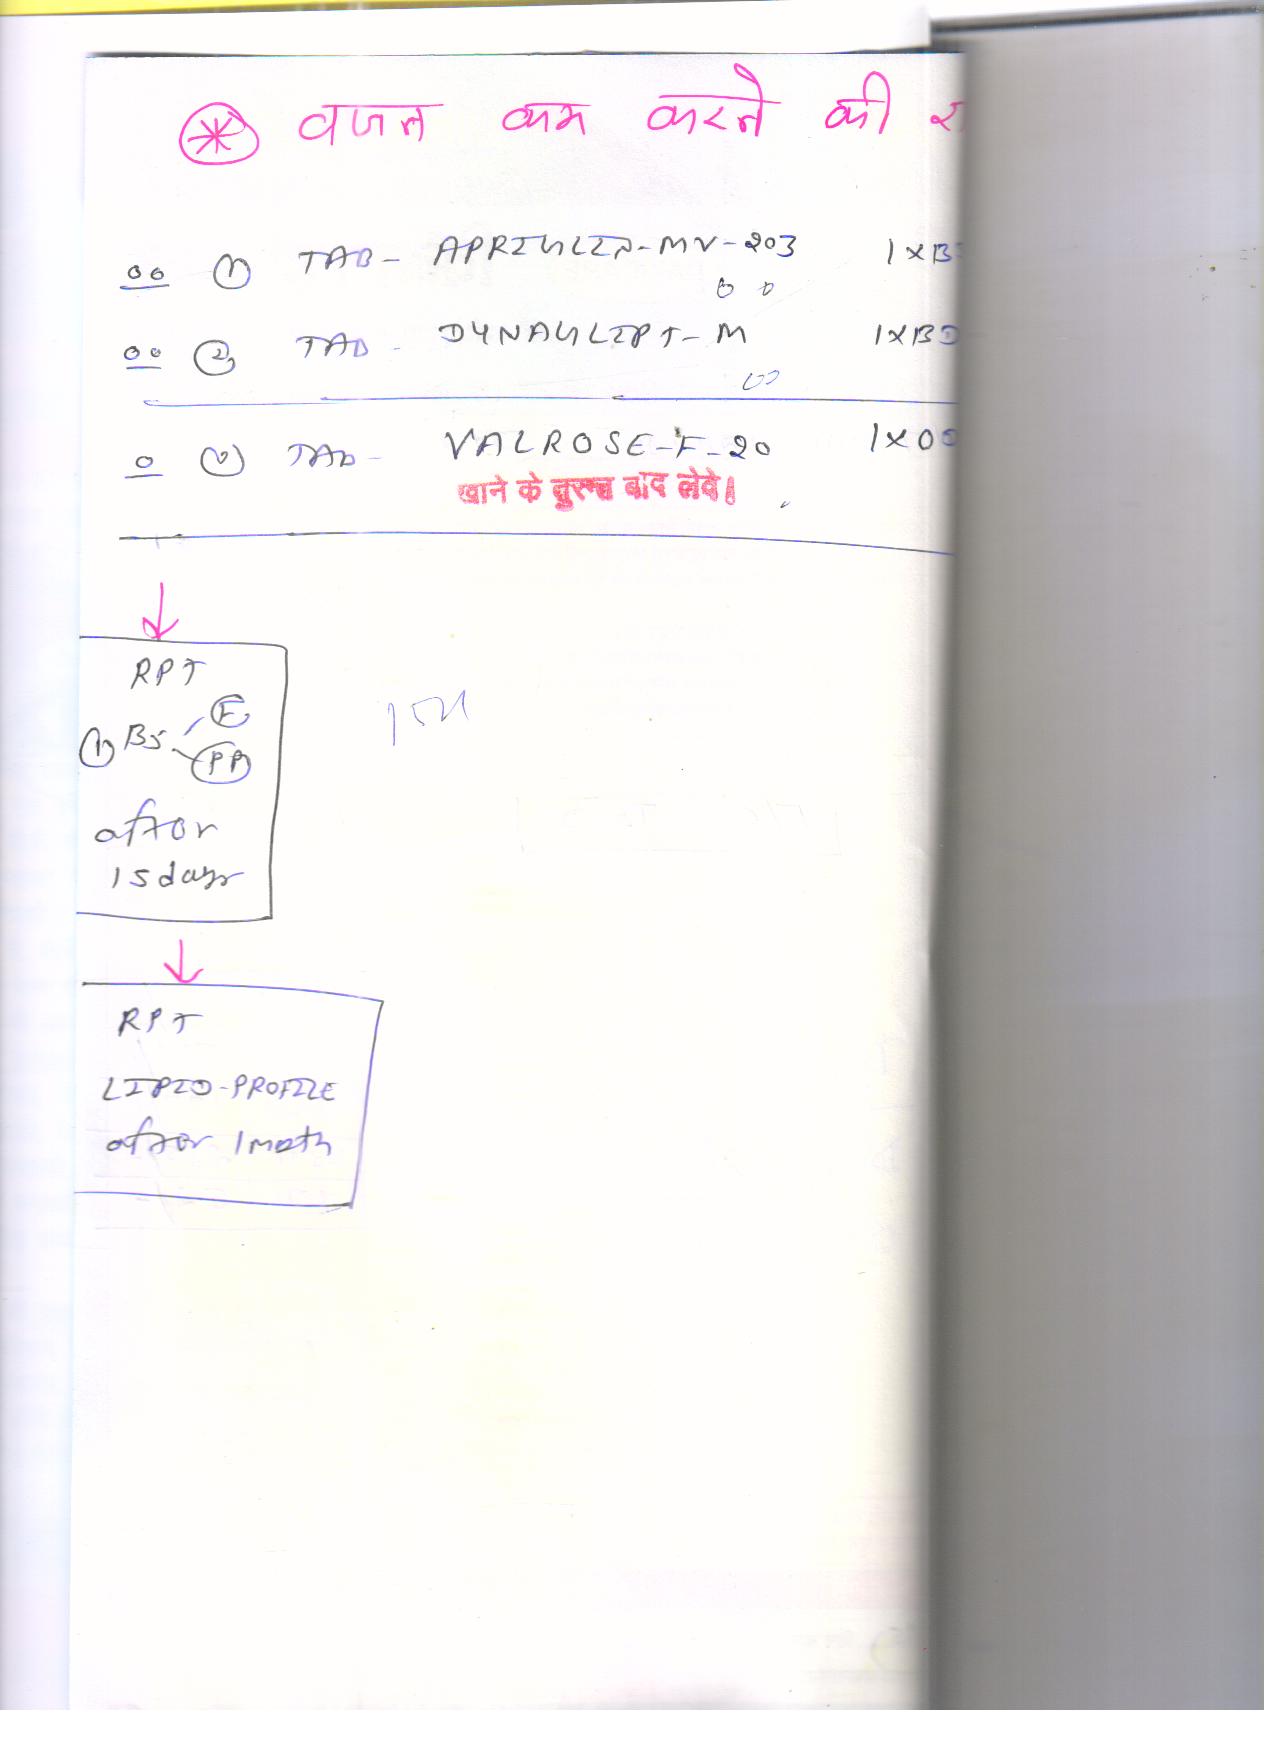 वजन कम करने की
00 1 TAB- APRIGLIP-MV-203 1×B
00 2 TAB- DYNAGLIPT-M 1×BD
0 3 TAB- VALROSE-F-20 1×0D
खाने के तुरन्त बाद लेवे।
RPT
1 BS F
PP
after
15 days
RPT
LIPID-PROFILE
after 1 moth